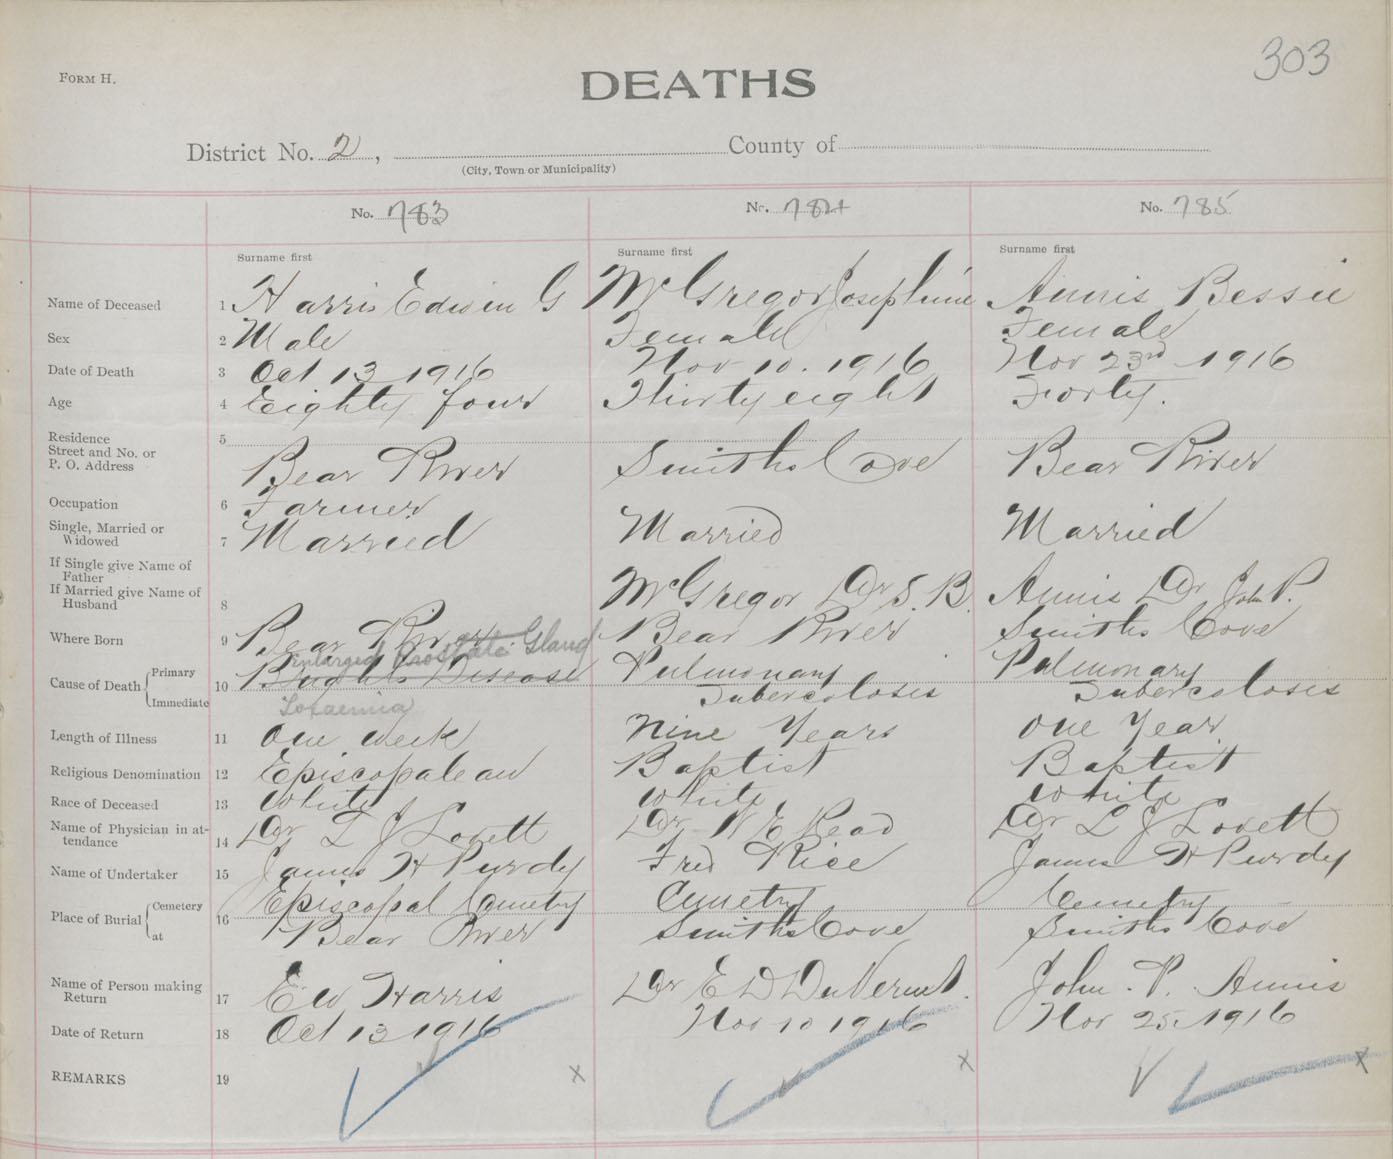 303
FORM H.
DEATHS
District No. 2, County of
(City, Town or Municipality)
No. 783 No. 784 No. 785
Surname first Surname first Surname first
Name of Deceased 1 Harris Edwin G McGregor Josephine Annis Bessie
Sex 2 Male Female Female
Date of Death 3 Oct 13 1916 Nov 10. 1916 Nov 23rd 1916
Age 4 Eighty four Thirty eight Forty.
Residence 5
Street and No. or
P. O. Address Bear River Smiths Cove Bear River
Occupation 6 Farmer
Single, Married or
Widowed 7 Married Married Married
If Single give Name of
Father
If Married give Name of
Husband 8 McGregor Dr S. B. Annis Dr John P.
Where Born 9 Bear River Bear River Smiths Cove
Enlarged Prostate Gland
Cause of Death Primary 10 Brights Disease Pulmonary Pulmonary
Immediate Toxaemia Tuberculosis Tuberculosis
Length of Illness 11 One week Nine Years One Year
Religious Denomination 12 Episcopalean Baptist Baptist
Race of Deceased 13 White White White
Name of Physician in at-
tendance 14 Dr L J Lovett Dr W E Read Dr L J Lovett
Name of Undertaker 15 James H Purdy Fred Rice James H Purdy
Place of Burial Cemetery 16 Episcopal Cemetry Cemetry Cemetry
at Bear River Smiths Cove Smiths Cove
Name of Person making
Return 17 E W Harris Dr E D DuVernet. John. P. Annis
Date of Return 18 Oct 13 1916 Nov 10 1916 Nov 25 1916
REMARKS 19 x x x